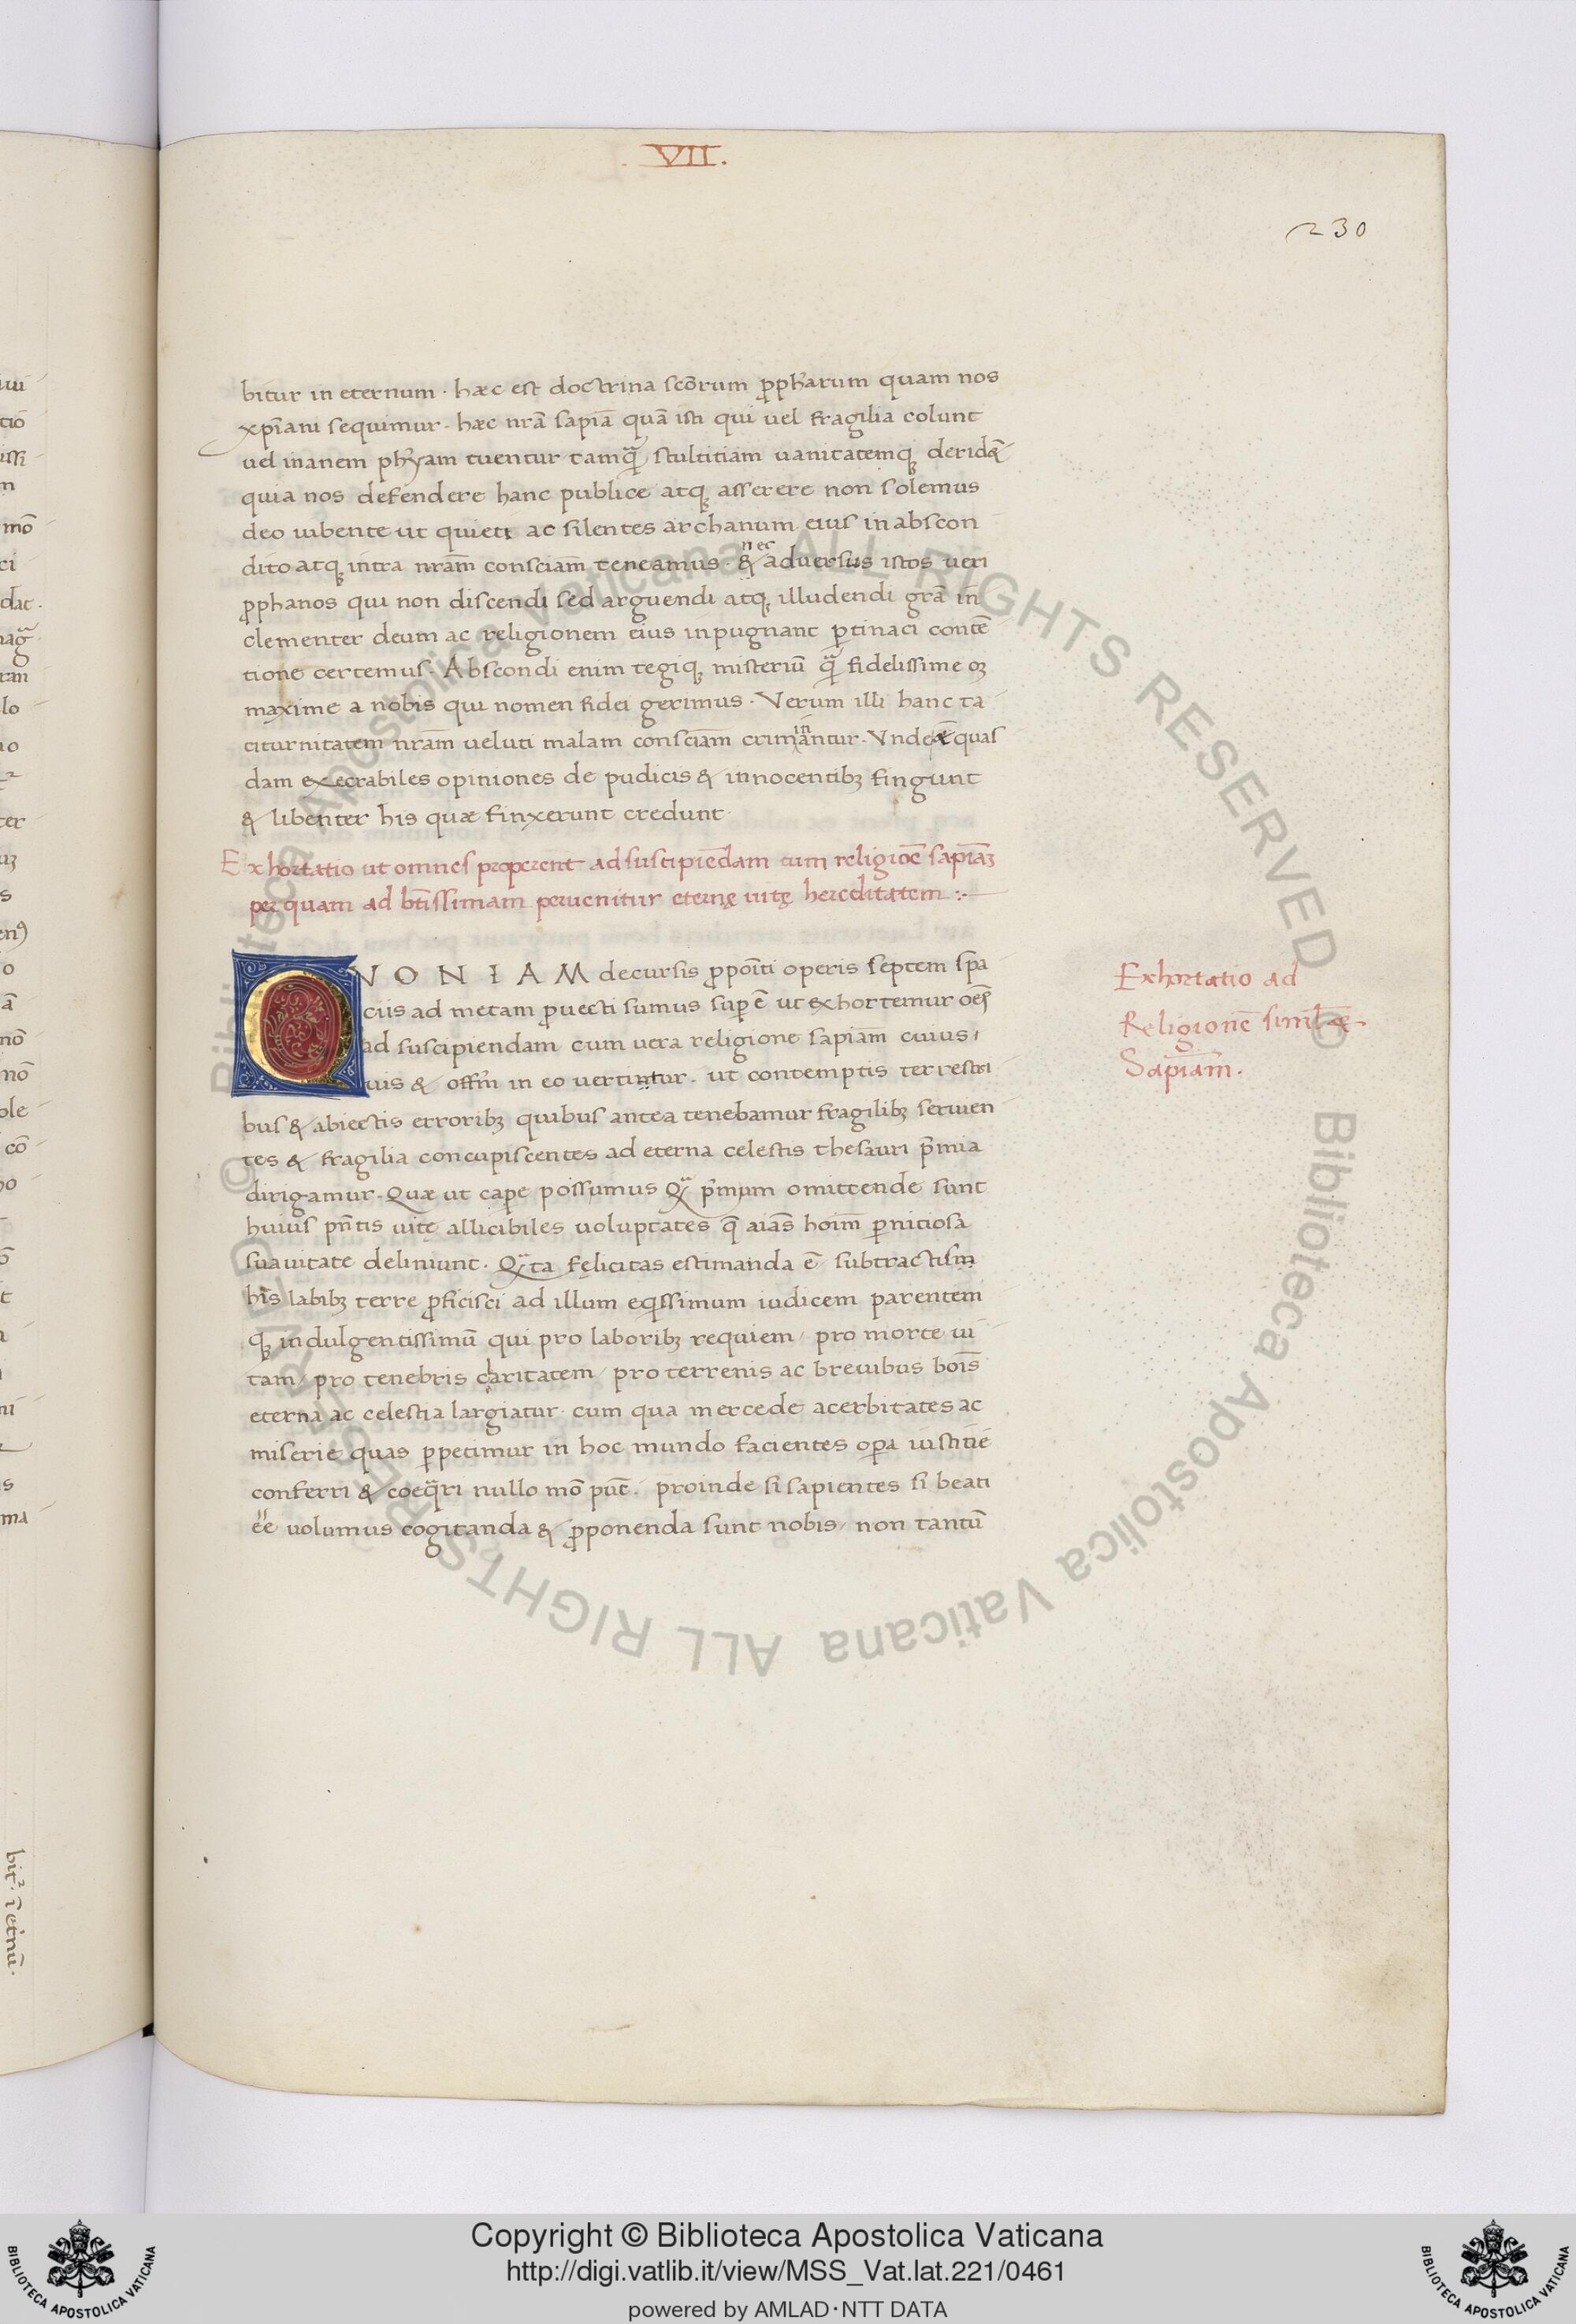 VII.
230
bitur in eternum · hæc est doctrina scōrum ꝓph̄arum quam nos
xp̄iani sequimur · hæc nr̄ā sapiā quā isti qui uel fragilia colunt
uel inanem ph̄yam tuentur tamq̄ stultitiam uanitatemqꝫ derid&̄
quia nos defendere hanc publice atqꝫ asserere non solemus
deo iubente ut quieti ac silentes archanum eius in abscon
dito atqꝫ intra nr̄am consciām teneamus · & nec aduersus istos ueri
ꝓphanos qui non discendi sed arguendi atqꝫ illudendi grā in
clementer deum ac religionem eius inpugnant ꝑtinaci contē
tione certemus · Abscondi enim tegiqꝫ misteriū q̄ fidelissime oꝫ
maxime a nobis qui nomen fidei gerimus · Verum illi hanc ta
citurnitatem nr̄am ueluti malam consciam criminantur · Vnde & quas
dam execrabiles opiniones de pudicis & innocentibꝫ fingunt
& libenter his quæ finxerunt credunt ·
Exhortatio ut omnes properent ad suscipiēdam cum religiōe sapiāꝫ
per quam ad bt̄issimam peruenitur eternę uitę hereditatem :·
QVONIAM decursis ꝓpoīti operis septem spa
ciis ad metam ꝓuecti sumus suꝑ ē ut exhortemur oēs
ad suscipiendam cum uera religione sapiam̄ cuius
uis & offm̄ in eo uertintur · ut contemptis terrestri
bus & abiectis erroribꝫ quibus antea tenebamur fragilibꝫ seruien
tes & fragilia concupiscentes ad eterna celestis thesauri p̄mia
dirigamur · Quæ ut caꝑe possumus Qͣ p̄mum omittende sunt
huius pn̄tis uitę allicibiles uoluptates q̄ aiās hoim̄ ꝑnitiosa
suauitate deliniunt · Qͣta felicitas estimanda ē subtractum
his labibꝫ terre ꝓficisci ad illum eqͥssimum iudicem parentem
qꝫ indulgentissimū qui pro laboribꝫ requiem / pro morte ui
tam / pro tenebris claritatem / pro terrenis ac breuibus boīs
eterna ac celestia largiatur · cum qua mercede acerbitates ac
miserie quas ꝑpetimur in hoc mundo facientes oꝑa iustitie
conferri & coeqͣri nullo mō pn̄t · proinde si sapientes si beati
ēē uolumus cogitanda & ꝓponenda sunt nobis / non tantū
Exhortatio ad
Religionē siml̄ &
Sapiam̄ ·
© Biblioteca Apostolica Vaticana ALL RIGHTS RESERVED
© Biblioteca Apostolica Vaticana ALL RIGHTS RESERVED
Copyright © Biblioteca Apostolica Vaticana
http://digi.vatlib.it/view/MSS_Vat.lat.221/0461
powered by AMLAD·NTT DATA
BIBLIOTECA APOSTOLICA VATICANA
BIBLIOTECA APOSTOLICA VATICANA